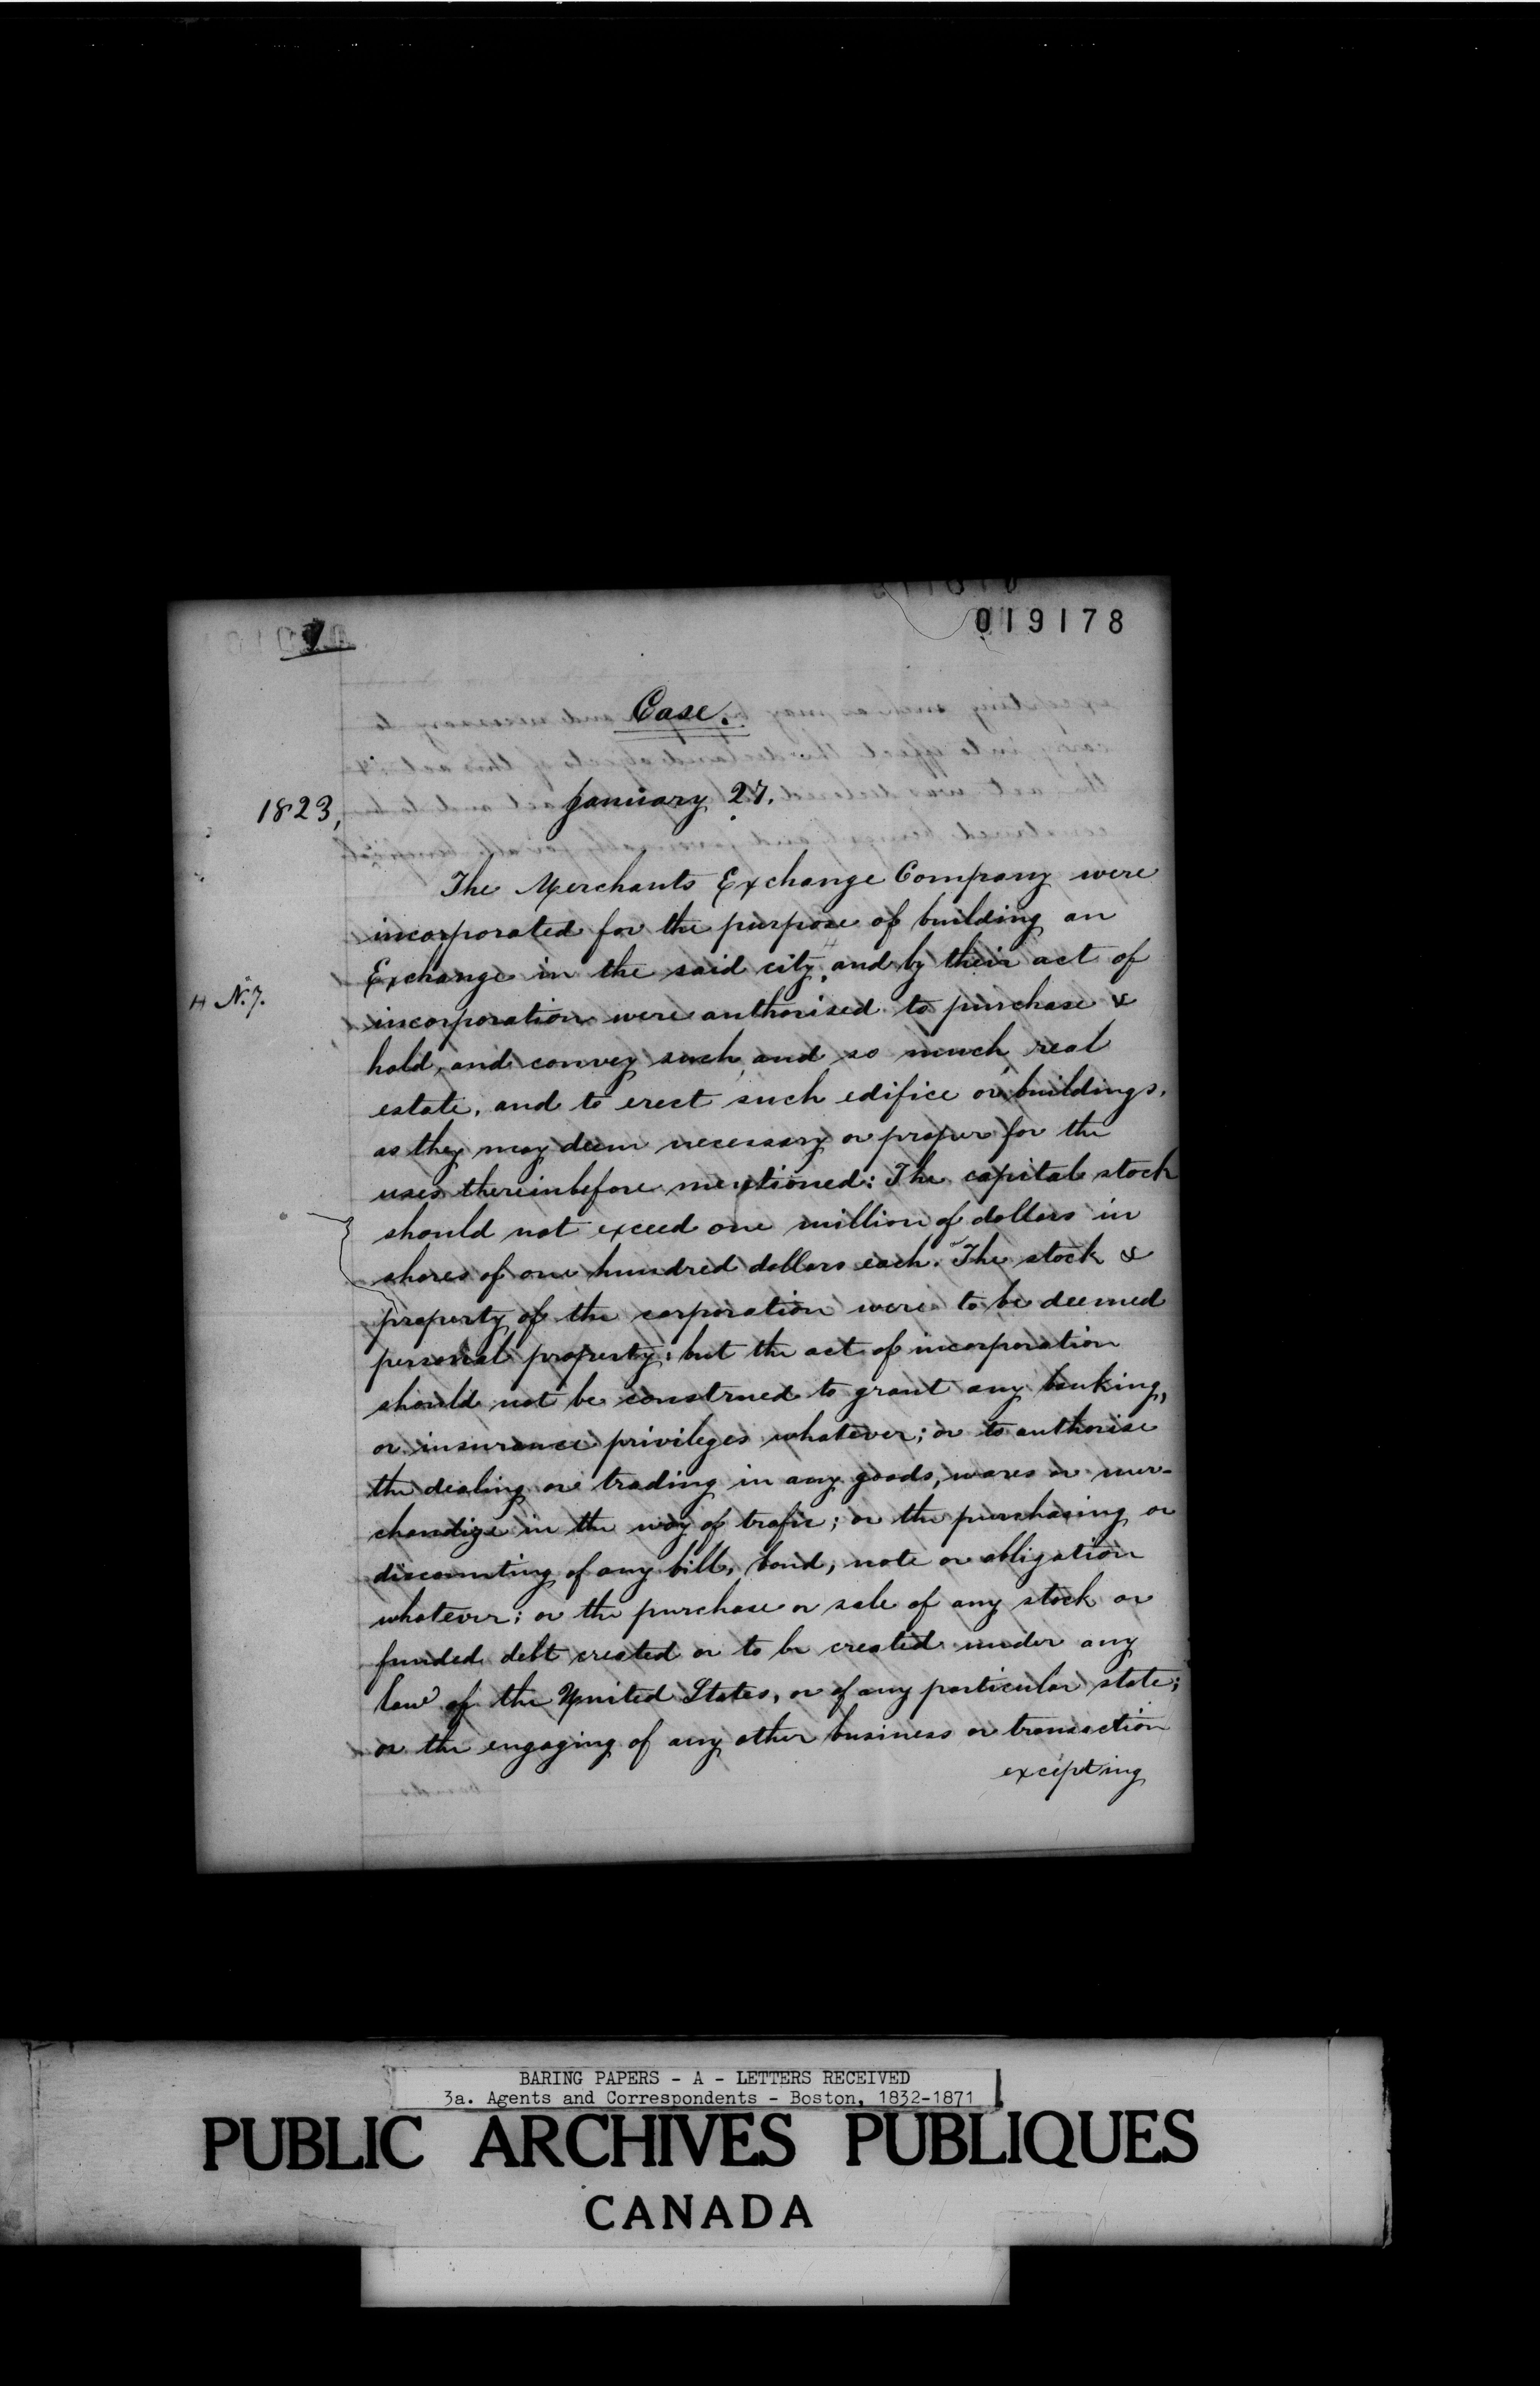 019178
1
Case.
1823, January 27.
The Merchants Exchange Company were
incorporated for the purpose of building an
Exchange in the said city, and by their act of
H N. Y. incorporation were authorised to purchase &
hold, and convey such, and so much, real
estate, and to erect such edifice or buildings,
as they may deem necessary or proper for the
uses thereinbefore mentioned: The capital stock
should not exceed one million of dollars in
shares of one hundred dollars each. The stock &
property of the corporation were to be deemed
personal property: but the act of incorporation
should not be construed to grant any banking,
or insurance privileges whatever; or to authorise
the dealing or trading in any goods, wares or mer-
chandize in the way of trafic; or the purchasing or
discounting of any bill, bond, note or obligation
whatever; or the purchase or sale of any stock or
funded debt created or to be created under any
law of the United States, or of any particular state;
or the engaging of any other business or transaction
excepting
BARING PAPERS - A - LETTERS RECEIVED
3a. Agents and Correspondents - Boston, 1832-1871
PUBLIC ARCHIVES PUBLIQUES
CANADA